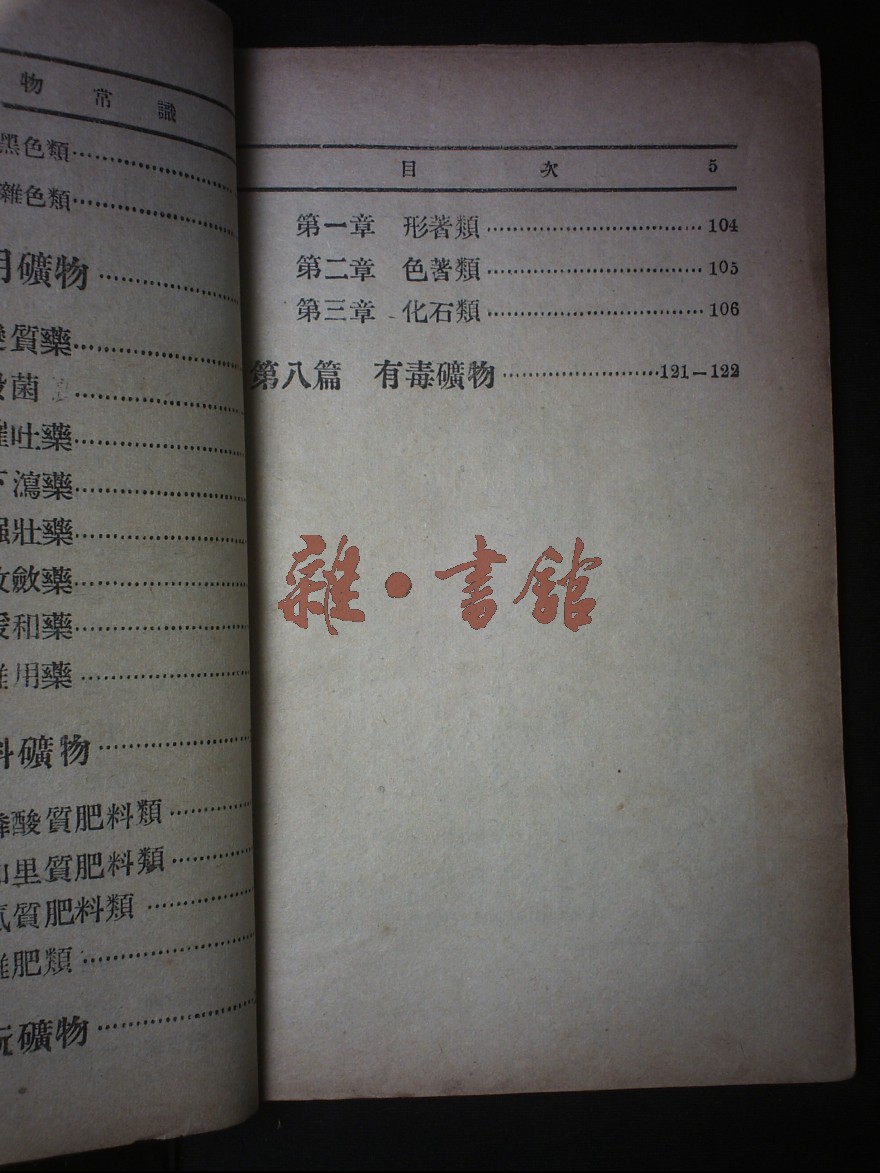 物常識
黑色類
雜色類
用礦物
變質藥
殺菌
催吐藥
下瀉藥
强壯藥
收斂藥
緩和藥
雜用藥
料礦物
磷酸質肥料類
加里質肥料類
氮質肥料類
雜肥類
玩礦物
目次 5
第一章 形著類 104
第二章 色著類 105
第三章 化石類 106
第八篇 有毒礦物 121—122
雜·書館